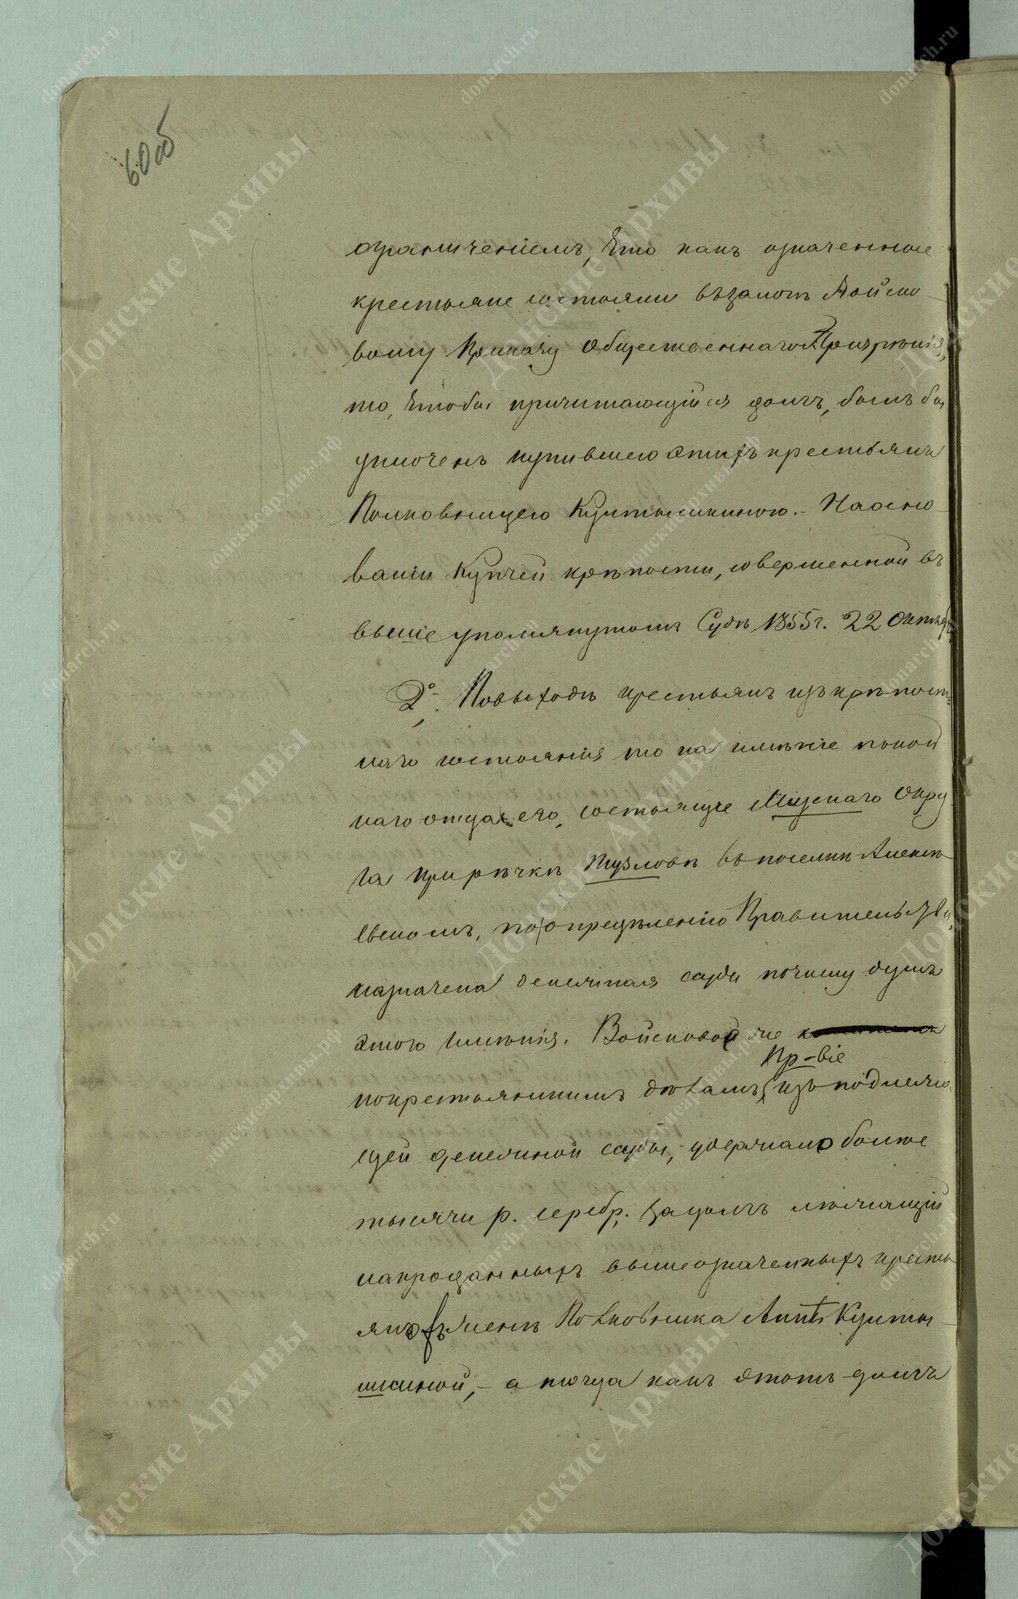 60об
ограниченіемъ, что какъ означенные
крестьяне состояли въ залогѣ Войско-
вому Приказу Общественнаго Призрѣнія,
то, чтобы причитающійся долгъ, былъ
уплоченъ купившею этихъ крестьянъ
Полковницею Култышкиною. – На осно-
ваніи Купчей крѣпости, совершенной въ
выше упомянутомъ Судѣ 1855 г. 22 Октября
2е. По выходѣ крестьянъ изъ крѣпост-
наго состоянія то на имѣніе покой-
наго отца его, состоящее Міускаго Окру-
га при рѣчкѣ Тузловѣ въ поселкѣ Алексѣ-
евскомъ, по опредѣленію Правительства,
назначена денежная ссуда по числу душъ
этого имѣнія. Войсковое же
Пр-віе
по крестьянскимъ дѣламъ, изъ подлежа-
щей денежной ссуды, удержало более
тысячи р. серебр. за долгъ лежащій
на проданныхъ вышеозначенныхъ кресть-
янъ женѣ Полковника Аннѣ Култы-
шкиной, – а тогда какъ этотъ долгъ